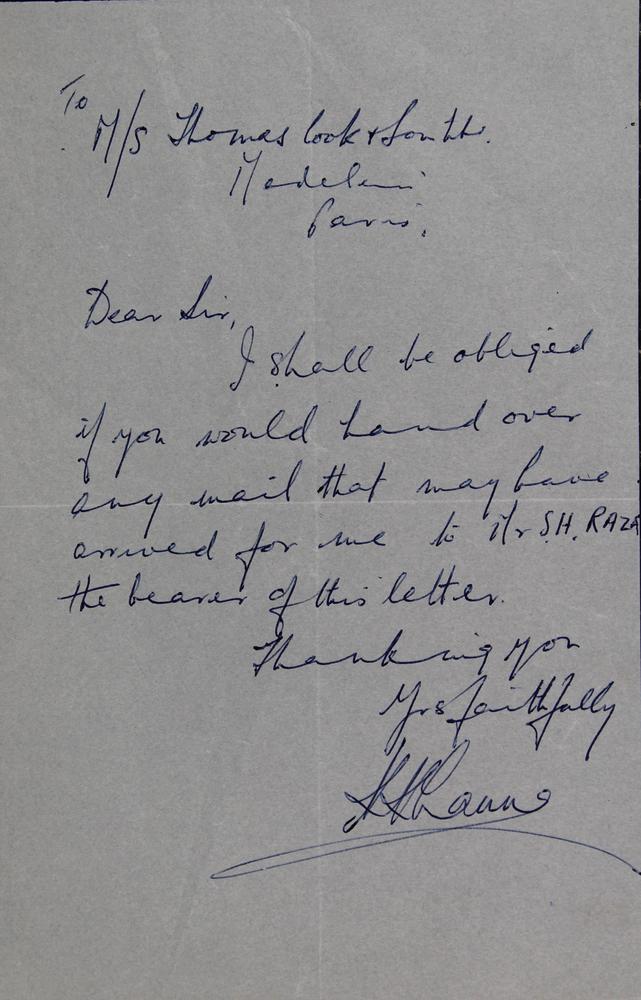 To
M/s Thomas Cook & Son Ltd.
Madeleine
Paris.
Dear Sir,
I shall be obliged
if you would hand over
any mail that may have
arrived for me to Mr S.H. RAZA
the bearer of this letter.
Thanking you
Yrs faithfully